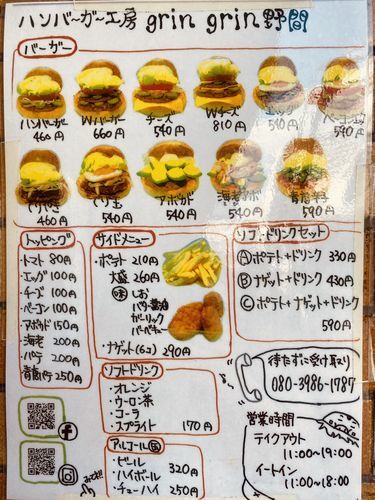 ハンバ〜ガ〜工房 grin grin 野間
バーガー
ハンバーガー 460円
Wバーガー 660円
チーズ 540円
Wチーズ 810円
エッグ 540円
ベーコンエッグ 590円
てりやき 460円
てり玉 540円
アボカド 540円
海老アボ 540円
青唐辛子 590円
トッピング
・トマト 80円
・エッグ 100円
・チーズ 100円
・ベーコン 100円
・アボカド 150円
・海老 200円
・パテ 200円
・青唐パテ 250円
サイドメニュー
・ポテト 210円
大盛 260円
味 しお
バター醤油
ガーリック
バーベキュー
・ナゲット(6コ) 290円
ソフトドリンク
・オレンジ
・ウーロン茶
・コーラ
・スプライト 170円
アルコール
・ビール
・ハイボール 320円
・チューハイ 250円
ソフトドリンクセット
Ⓐポテト+ドリンク 330円
Ⓑナゲット+ドリンク 430円
Ⓒポテト+ナゲット+ドリンク
590円
待たずに受け取り
080-3986-1787
営業時間
テイクアウト
11:00〜19:00
イートイン
11:00〜18:00